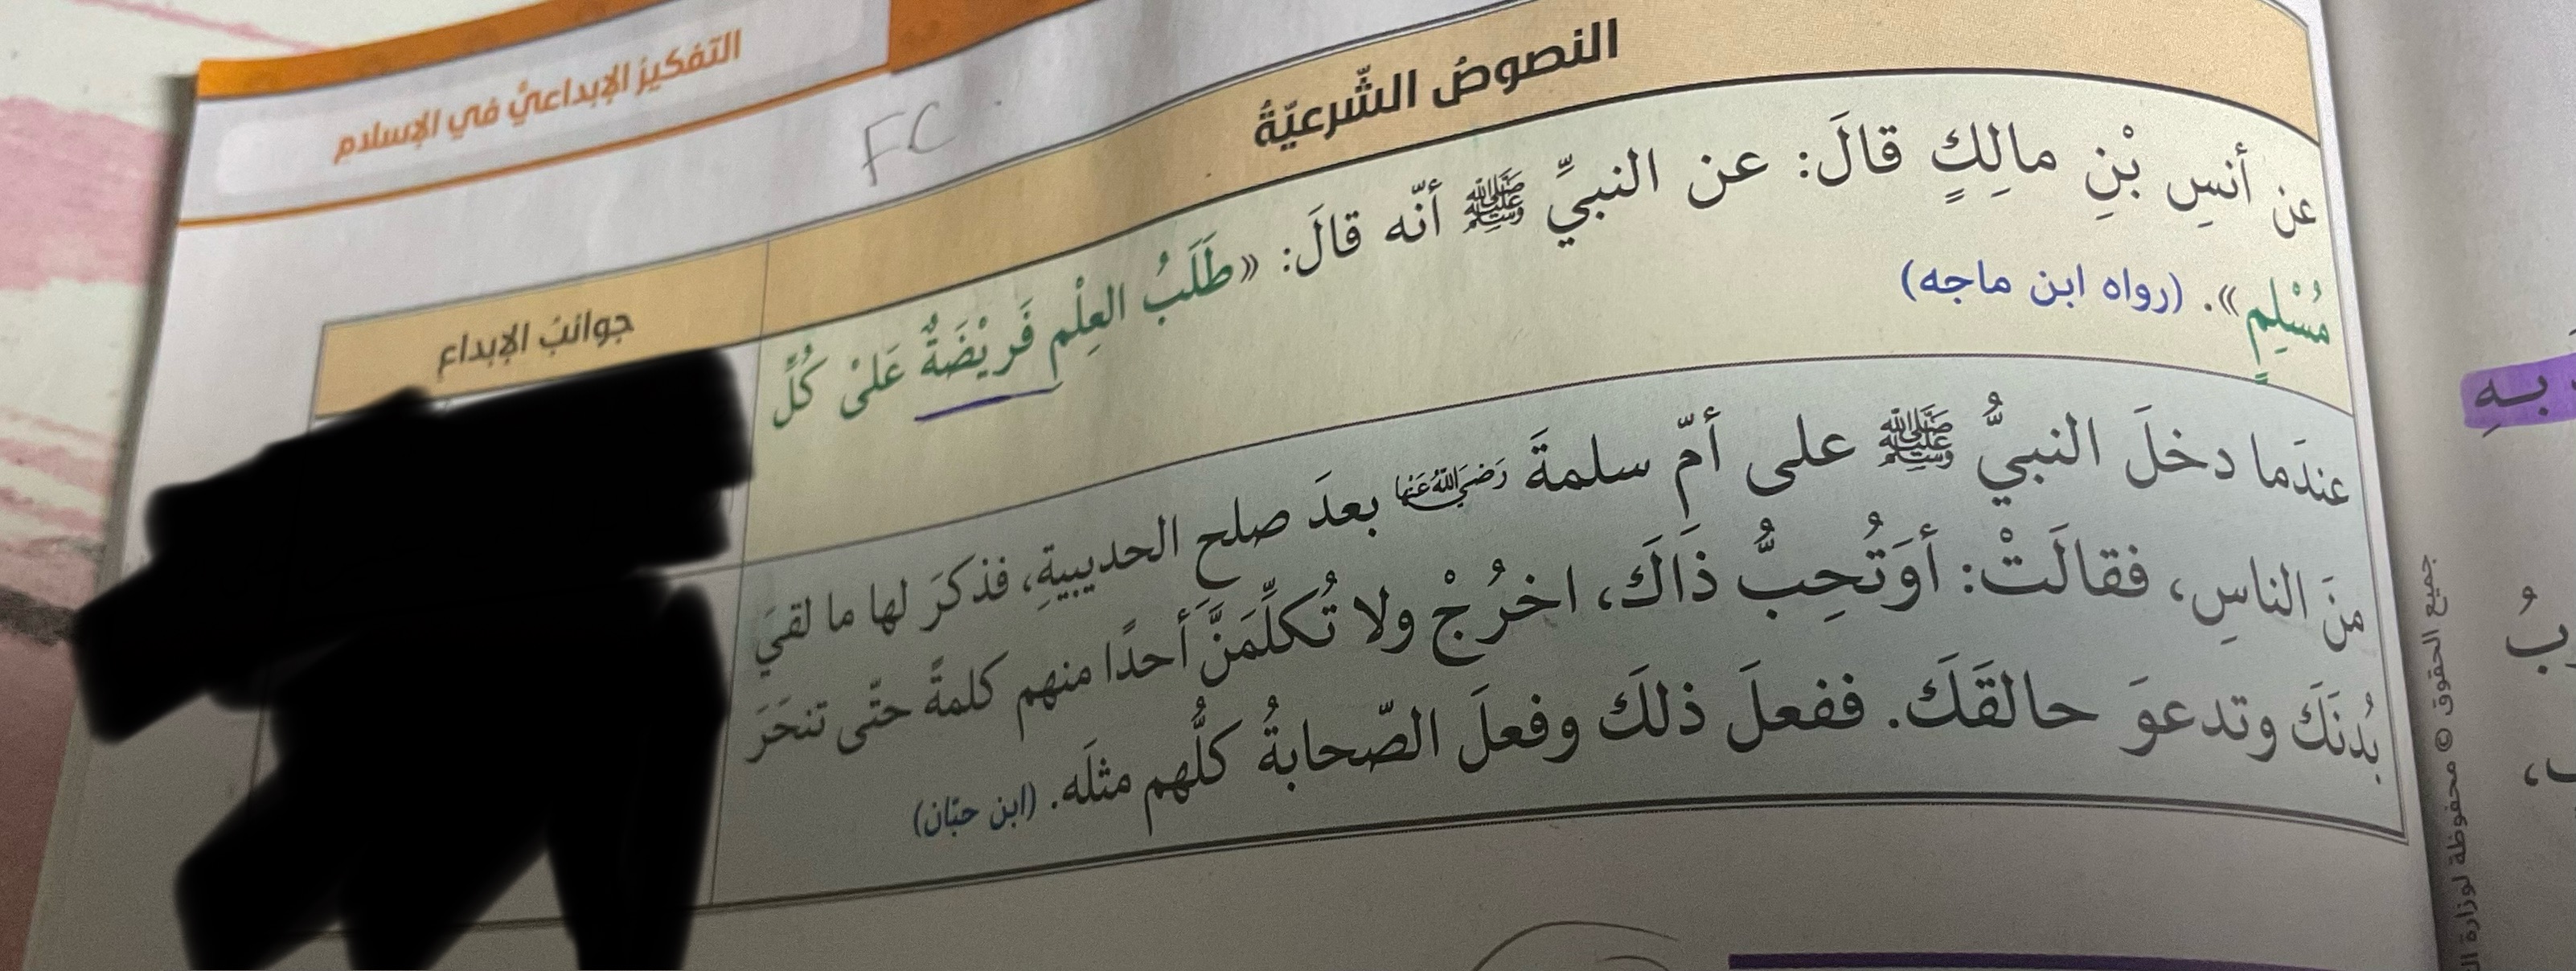 التّفكيرُ الإبداعيُّ في الإسلام
FC
النصوصُ الشّرعيّةُ
جوانبُ الإبداعِ
عن أنسِ بْنِ مالِكٍ قالَ: عن النبيِّ ﷺ أنّه قالَ: «طَلَبُ العِلْمِ فَريْضَةٌ عَلىْ كُلِّ
مُسْلِمٍ». (رواه ابن ماجه)
عندَما دخلَ النبيُّ ﷺ على أمّ سلمةَ رَضِيَ اللَّهُ عَنْهَا بعدَ صلحِ الحديبيةِ، فذكرَ لها ما لقيَ
منَ الناسِ، فقالَتْ: أوَتُحِبُّ ذَاكَ، اخرُجْ ولا تُكلِّمَنَّ أحدًا منهم كلمةً حتّى تنحَرَ
بُدنَكَ وتدعوَ حالقَكَ. ففعلَ ذلكَ وفعلَ الصّحابةُ كلُّهم مثلَه. (ابن حبّان)
بهِ
جميع الحقوق © محفوظة لوزارة